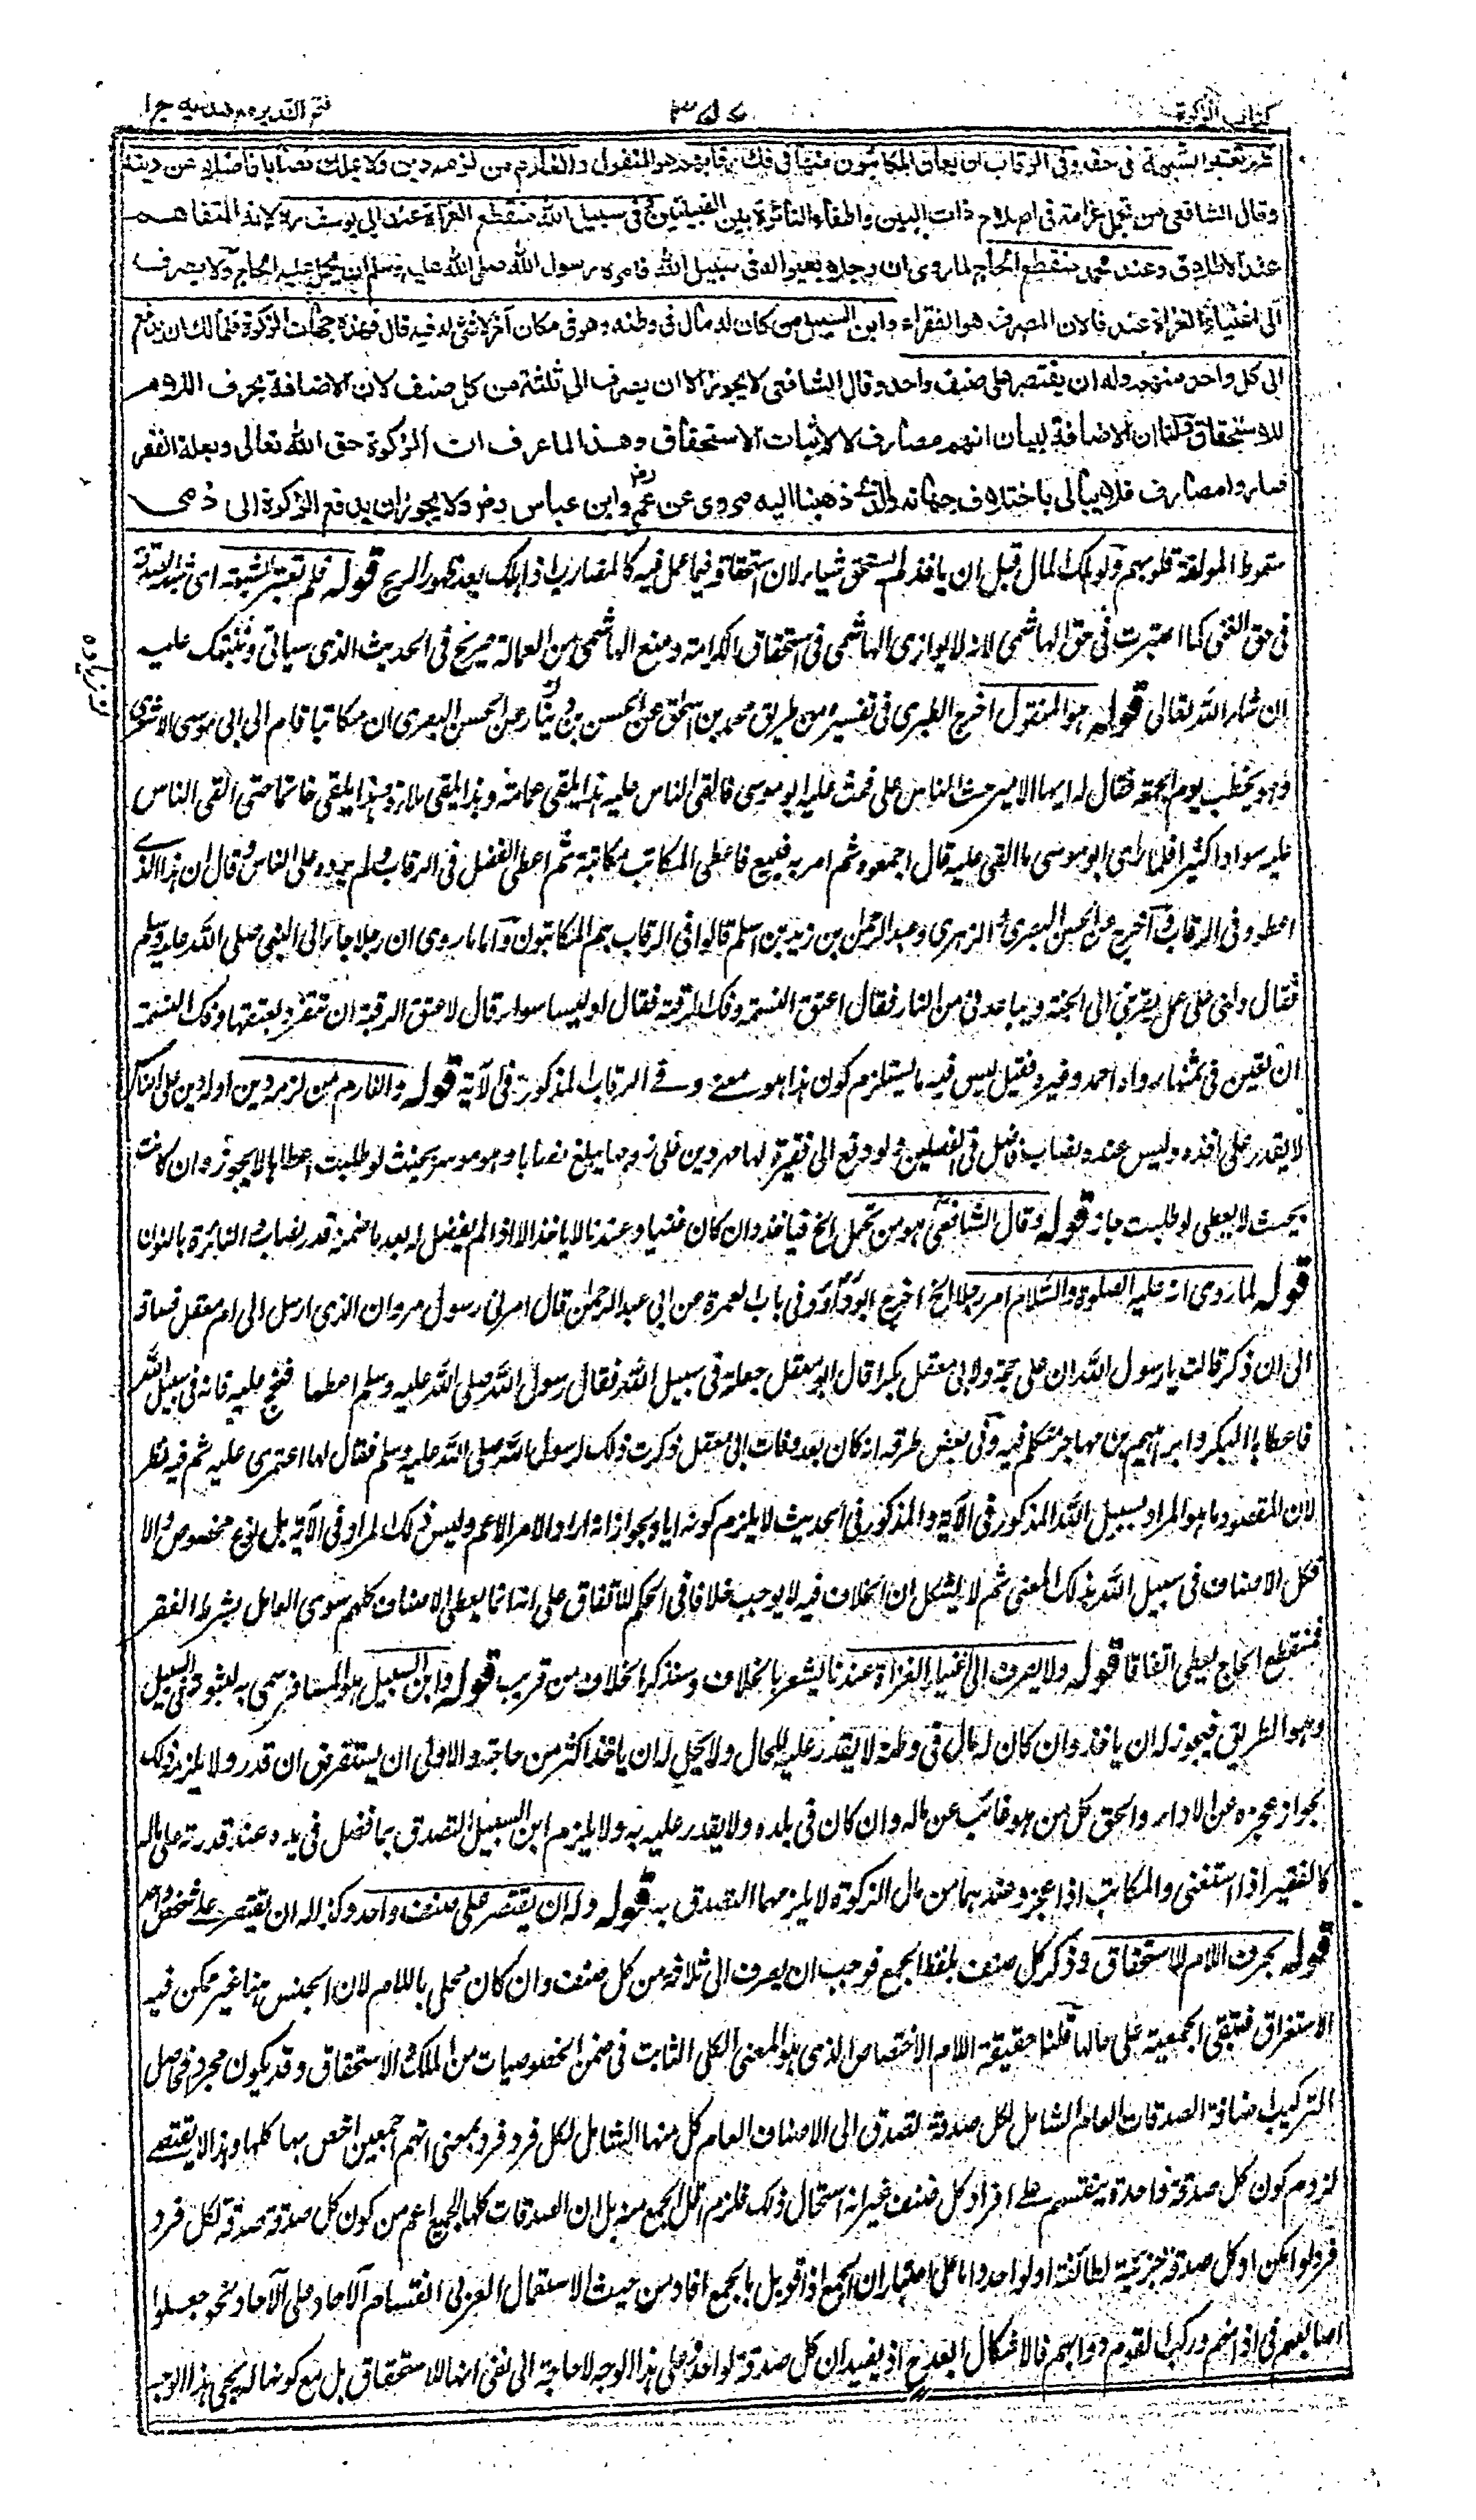 كتاب الزكوة
٣٥٧
فتح القدير مع هدايه ج ١
تعتبر الشبهة في حقه وفي الرقاب ان يعان المكاتبون منها في فك رقابهم هو المنقول والغارم من لزمه دين ولا يملك نصابا فاضلا عن دينه
وقال الشافعي من تحمل غرامة في اصلاح ذات البين واطفاء النائرة بين القبيلتين وفي سبيل الله منقطع الغزاة عند ابي يوسف رح لانه المتفاهم
عند الاطلاق وعند محمد منقطع الحاج لما روى ان رجلا جعل بعيرا له في سبيل الله فامره رسول الله صلى الله عليه وسلم ان يحمل عليه الحاج ولا يصرف
الى اغنياء الغزاة عندنا لان المصرف هو الفقراء وابن السبيل من كان له مال في وطنه وهو في مكان آخر لا شئ له فيه قال فهذه جهات الزكوة فللمالك ان يدفع
الى كل واحد منهم وله ان يقتصر على صنف واحد وقال الشافعي لا يجوز الا ان يصرف الى ثلثة من كل صنف لان الاضافة بحرف اللام
للاستحقاق ولنا ان الاضافة لبيان انهم مصارف لا لاثبات الاستحقاق وهذا لما عرف ان الزكوة حق الله تعالى وبعلة الفقر
صاروا مصارف فلا يبالى باختلاف جهاته والذي ذهبنا اليه مروى عن عمر وابن عباس رض ولا يجوز ان يدفع الزكوة الى ذمى
سقوط المؤلفة قلوبهم ولو هلك المال قبل ان ياخذ لم يستحق شيئا لان استحقاقه فيما عمل فيه كالمضارب اذا هلك بعد ظهور الربح قوله فلم تعتبر الشبهة اى شبهة الصدقة
في حق الغنى كما اعتبرت في حق الهاشمى لانه لا يوازى الهاشمى في استحقاق الكرامة ومنع الهاشمى من العمالة صريح في الحديث الذى سياتى وننبهك عليه
ان شاء الله تعالى قوله هو المنقول اخرج الطبرى في تفسيره من طريق محمد بن اسحق عن الحسن بن دينار عن الحسن البصرى ان مكاتبا قام الى ابى موسى الاشعرى
وهو يخطب يوم الجمعة فقال له ايها الامير حث الناس على فحث عليه ابو موسى فالقى الناس عليه هذا يلقى عمامته وهذا يلقى ملاءة وهذا يلقى خاتما حتى القى الناس
عليه سوادا كثيرا فلما راى ابو موسى ما القى عليه قال اجمعوه ثم امر به فبيع فاعطى المكاتب مكاتبته ثم اعطى الفضل في الرقاب ولم يرده على الناس وقال ان هذا الذى
اعطوه في الرقاب واخرج عن الحسن البصرى والزهرى وعبد الرحمن بن زيد بن اسلم قالوا في الرقاب هم المكاتبون واما ما روى ان رجلا جاء الى النبى صلى الله عليه وسلم
فقال دلنى على عمل يقربنى الى الجنة ويباعدنى من النار فقال اعتق النسمة وفك الرقبة فقال اوليسا سواء قال لا عتق الرقبة ان تنفرد بعتقها وفك النسمة
ان تعين في ثمنها رواه احمد وغيره فقيل ليس فيه ما يستلزم كون هذا هو معنى وفى الرقاب المذكور في الآية قوله والغارم من لزمه دين او له دين على الناس
لا يقدر على اخذه وليس عنده نصاب فاضل في الفصلين ولو دفع الى فقيرة لها مهر دين على زوجها يبلغ نصابا وهو موسر بحيث لو طلبت اعطاها لا يجوز وان كانت
بحيث لا يعطى لو طلبت جاز قوله وقال الشافعى هو من تحمل الخ فياخذ وان كان غنيا وعندنا لا ياخذ الا اذا لم يفضل له بعد ما ضمنه قدر نصاب والنائرة بالنون
قوله لما روى انه عليه الصلوة والسلام امر رجلا الخ اخرج ابو داود في باب العمرة عن ابى عبد الرحمن قال امرنى رسول مروان الذى ارسل الى ام معقل فساقه
الى ان ذكر قالت يا رسول الله ان على حجة ولابى معقل بكرا قال ابو معقل جعلته في سبيل الله فقال رسول الله صلى الله عليه وسلم اعطها فلتحج عليه فانه في سبيل الله
فاعطاها البكر وابراهيم بن مهاجر متكلم فيه وفى بعض طرقه انه كان بعد وفات ابى معقل ذكرت ذلك لرسول الله صلى الله عليه وسلم فقال لها اعتمرى عليه ثم فيه نظر
لان المقصود ما هو المراد بسبيل الله المذكور في الآية والمذكور في الحديث لا يلزم كونه اياه لجواز انه اراد الامر الاعم وليس ذلك المراد في الآية بل نوع مخصوص والا
فكل الاصناف في سبيل الله بذلك المعنى ثم لا يشكل ان الخلاف فيه لا يوجب خلافا في الحكم للاتفاق على انه انما يعطى الاصناف كلهم سوى العامل بشرط الفقر
فمنقطع الحاج يعطى اتفاقا قوله ولا يصرف الى اغنياء الغزاة عندنا يشعر بالخلاف وسنذكر الخلاف من قريب قوله وابن السبيل هو المسافر سمى به لثبوته في السبيل
وهو الطريق فيجوز له ان ياخذ وان كان له مال في وطنه لا يقدر عليه للحال ولا يحل له ان ياخذ اكثر من حاجته والاولى ان يستقرض ان قدر ولا يلزمه ذلك
لجواز عجزه عن الاداء والحق كل من هو غائب عن ماله وان كان في بلده ولا يقدر عليه به ولا يلزم ابن السبيل التصدق بما فضل في يده عند قدرته على ماله
كالفقير اذا استغنى والمكاتب اذا عجز وعندهما من مال الزكوة لا يلزمهما التصدق به قوله وله ان يقتصر على صنف واحد وكذا له ان يقتصر على شخص واحد
قوله بحرف اللام للاستحقاق وذكر كل صنف بلفظ الجمع فوجب ان يصرف الى ثلاثة من كل صنف وان كان محلى باللام لان الجنس هنا غير ممكن فيه
الاستغراق فتبقى الجمعية على حالها قلنا حقيقة اللام الاختصاص الذى هو المعنى الكلى الثابت في ضمن الخصوصيات من الملك والاستحقاق وقد يكون مجردا فحاصل
التركيب اضافة الصدقات العام الشامل لكل صدقة تصدق الى الاصناف العام كل منها الشامل لكل فرد فرد بمعنى انهم اجمعين اخص بها كلها وهذا لا يقتضى
لزوم كون كل صدقة واحدة ينقسم على افراد كل صنف غير انه استحال ذلك فلزم اقل الجمع منه بل ان الصدقات كلها للجميع اعم من كون كل صدقة صدقة لكل فرد
فرد لو امكن او كل صدقة جزئية لطائفة او لواحد واما على اعتبار ان الجمع اذا قوبل بالجمع افاد من حيث الاستعمال العربى انقسام الآحاد على الآحاد نحو جعلوا
اصابعهم في اذانهم وركب القوم دوابهم فالاشكال ابعد ح اذ يفيد ان كل صدقة لواحد وعلى هذا الوجه لا حاجة الى نفى انها للاستحقاق بل مع كونها له يجئ هذا الوجه